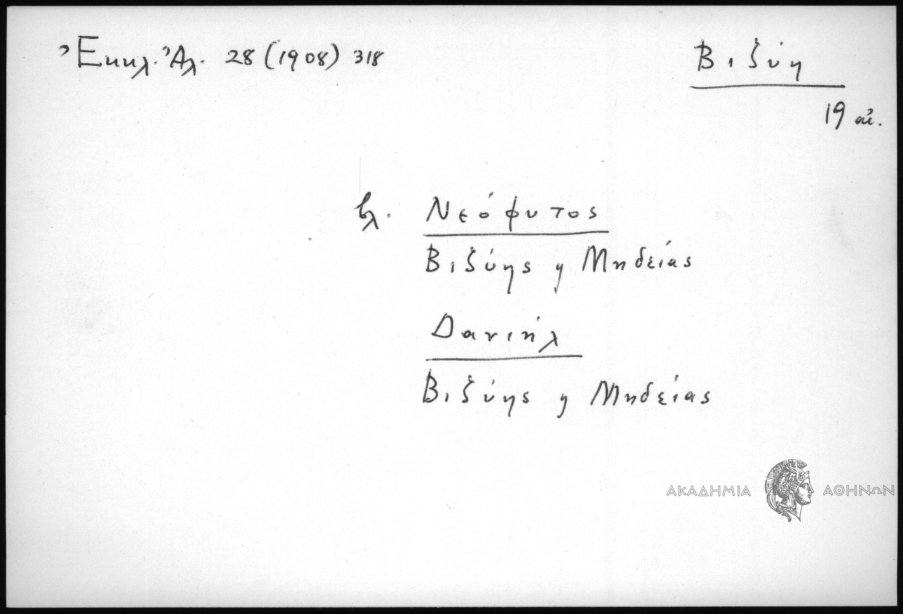 Ἐκκλ. Ἀλ. 28 (1908) 318
Βιζύη
19 αἰ.
βλ. Νεόφυτος
Βιζύης η Μηδείας
Δανιήλ
Βιζύης η Μηδείας
ΑΚΑΔΗΜΙΑ ΑΘΗΝΩΝ